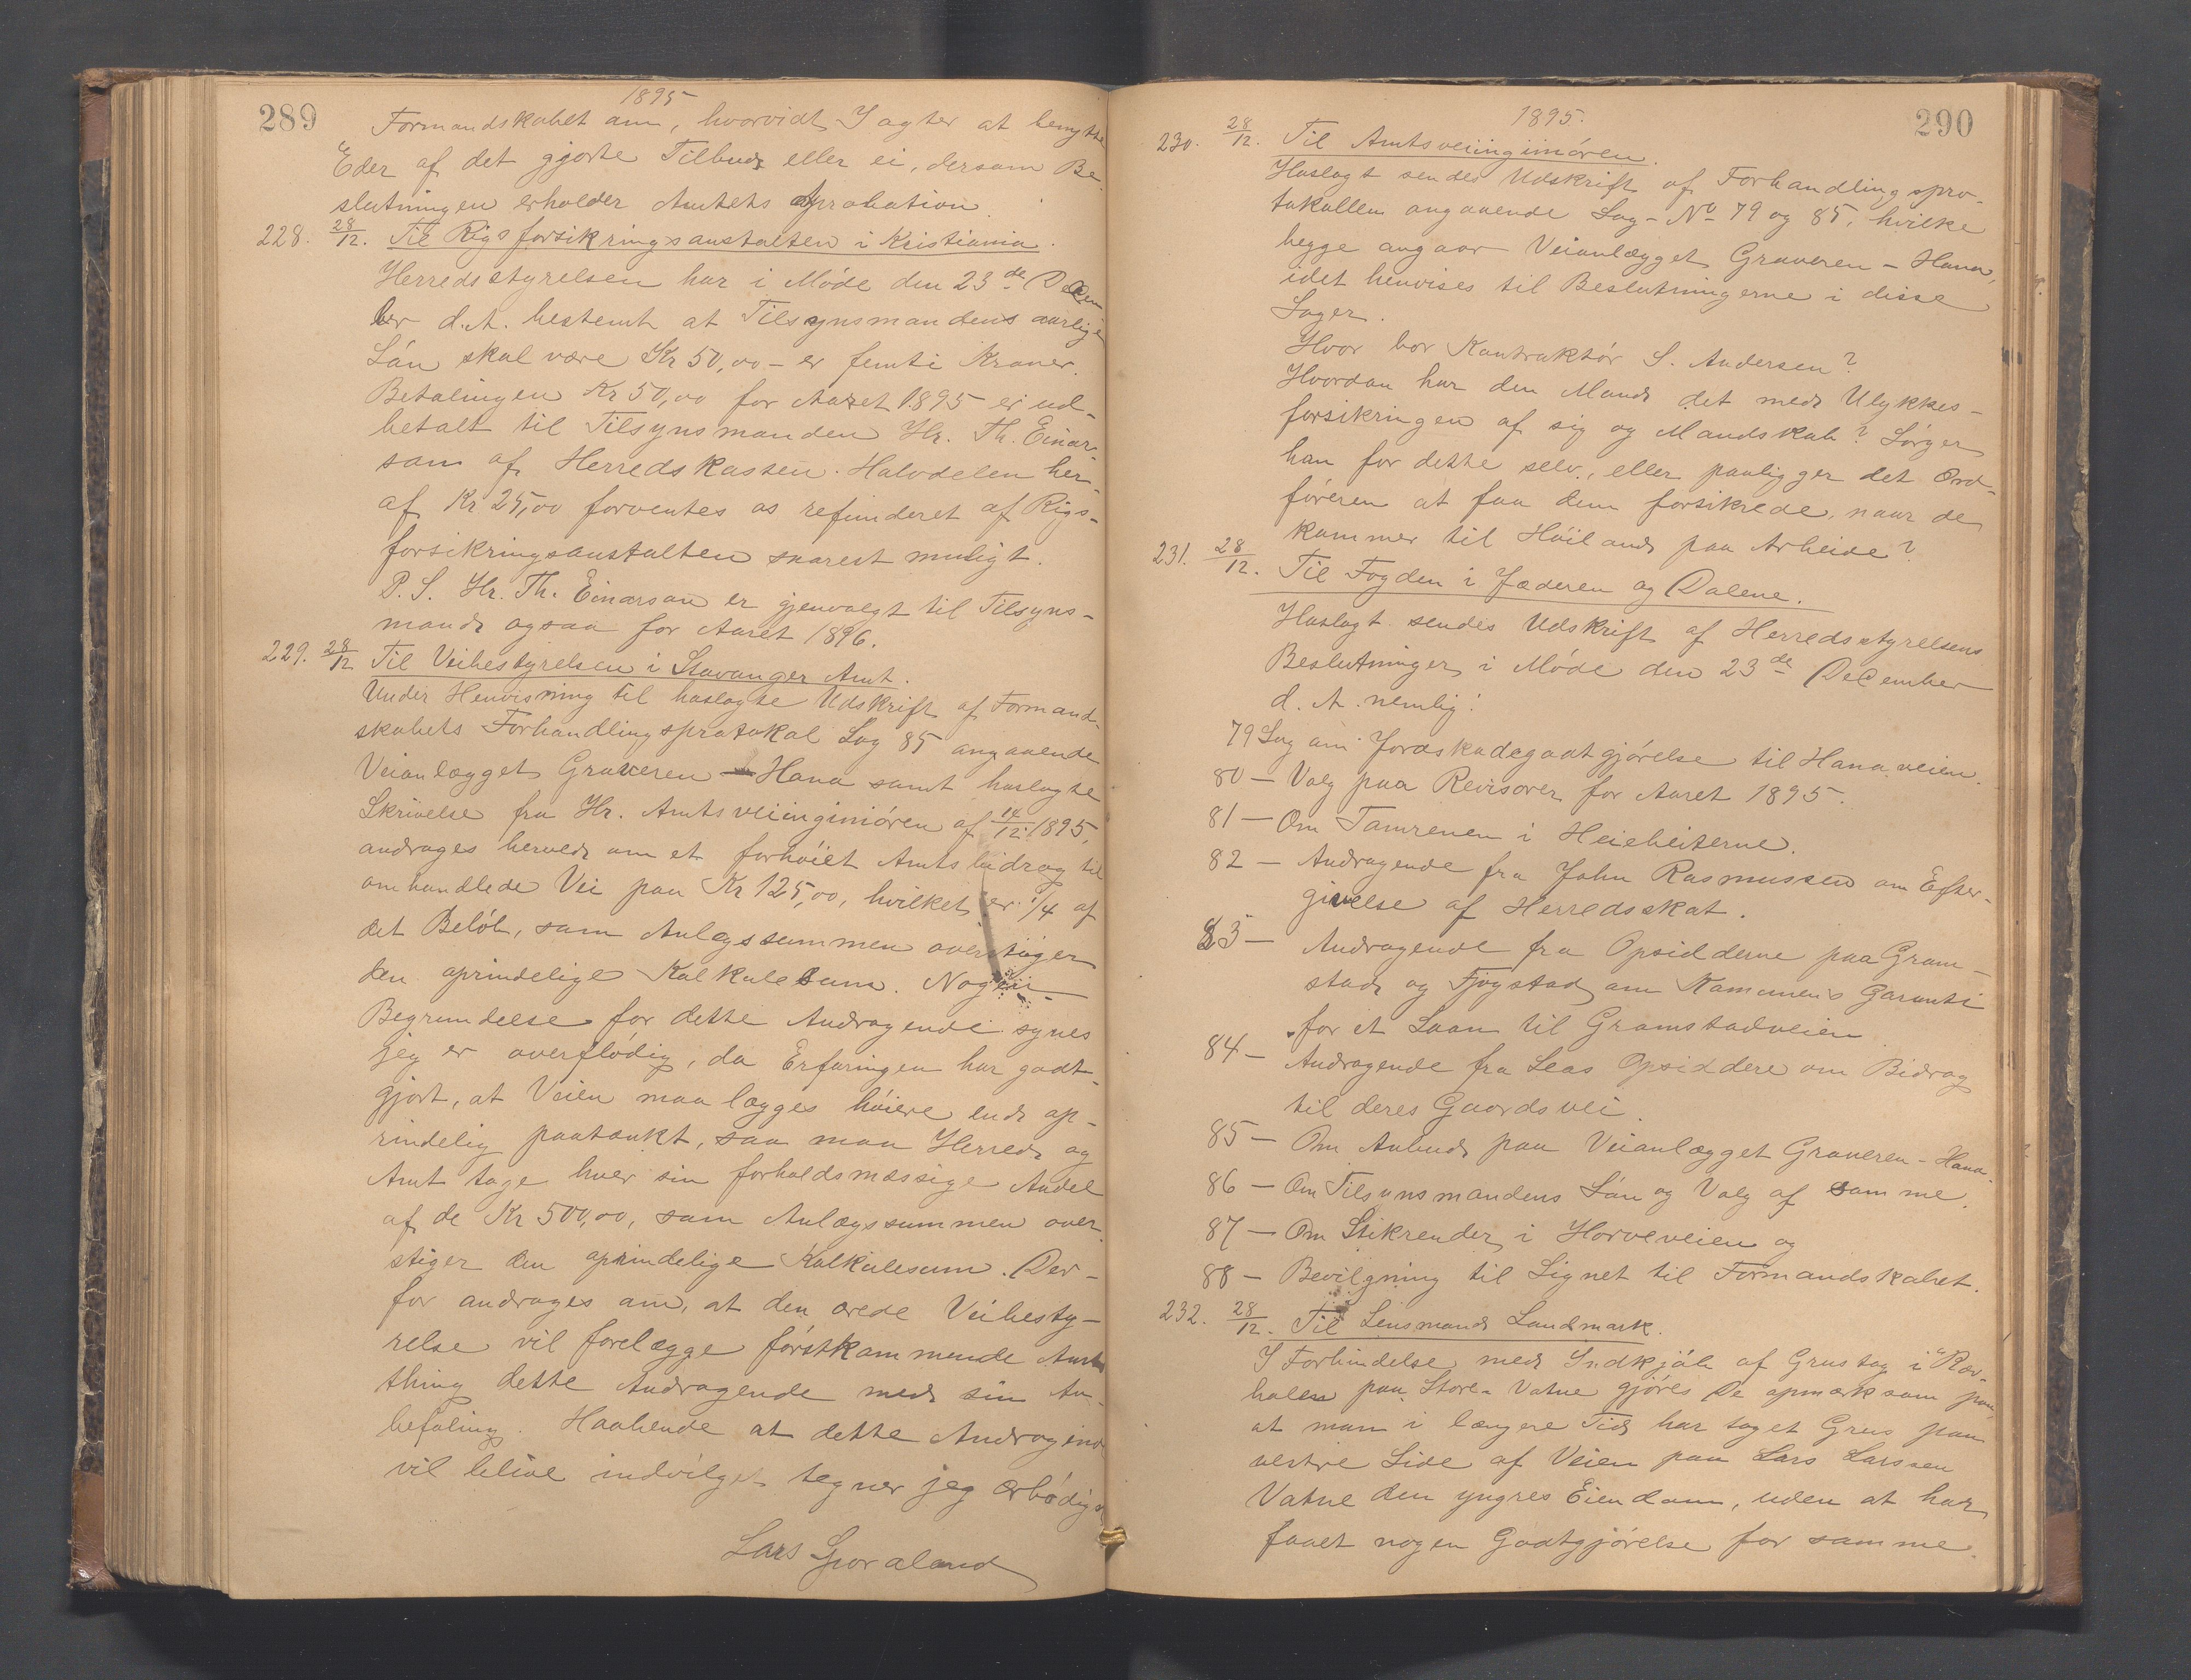 289
1895
Formandskabet om, hvorvidt I agter at benytte
Eder af det gjorte Tilbud eller ei, dersom Be-
slutningen erholder Amtets Aprobation.
228. 28/12. Til Rigsforsikringsanstalten i Kristiania.
Herredsstyrelsen har i Møde den 23de Decem
ber d.A. bestemt at Tilsynsmandens aarlige
Løn skal være Kr 50,00 - er femti Kroner.
Betalingen Kr 50,00 for Aaret 1895 er ud-
betalt til Tilsynsmanden Hr. Th. Einar-
son af Herredskassen. Halvdelen her-
af Kr 25,00 forventes os refunderet af Rigs-
forsikringsanstalten snarest muligt.
P.S. Hr. Th. Einarson er gjenvalgt til Tilsyns-
mand ogsaa for Aaret 1896.
229. 28/12 Til Veibestyrelsen i Stavanger Amt.
Under Henvisning til hoslagte Udskrift af Formand-
skabets Forhandlingsprotokol Sag 85 angaaende
Veianlægget Graveren - Hana samt hoslagte
Skrivelse fra Hr. Amtsveiinginiøren af 14/12 1895,
andrages herved om et forhøiet Amtsbidrag til
omhandlede Vei paa Kr 125,00, hvilket er 1/4 af
det Beløb, som Anlægssummen overstiger
den oprindelige Kalkulesum. Nogen
Begrundelse for dette Andragende synes
jeg er overflødig, da Erfaringen har godt-
gjort, at Veien maa lægges høiere end op-
rindelig paatænkt, saa maa Herred og
Amt tage hver sin forholdsmæssige Andel
af de Kr 500,00, som Anlægssummen over-
stiger den oprindelige Kalkulesum. Der-
for andrages om, at den ærede Veibesty-
relse vil forelægge førstkommende Amts
thing dette Andragende med sin An-
befaling. Haabende at dette Andragende
vil blive indvilget tegner jeg ærbødigst
Lars Sporaland
290
1895.
230. 28/12. Til Amtsveiinginiøren.
Hoslagt sendes Udskrift af Forhandlingspro-
tokollen angaaende Sag-No 79 og 85, hvilke
begge angaar Veianlægget Graveren - Hana,
idet henvises til Beslutningerne i disse
Sager.
Hvor bor Kontraktør S. Andersen?
Hvordan har den Mand det med Ulykkes-
forsikringen af sig og Mandskab? Sørger
han for dette selv, eller paaligger det Ord-
føreren at faa dem forsikrede, naar de
kommer til Høiland paa Arbeide?
231. 28/12. Til Fogden i Jæderen og Dalene.
Hoslagt sendes Udskrift af Herredsstyrelsens
Beslutninger i Møde den 23de December
d. A. nemlig:
79 Sag om Jordskadegodtgjørelse til Hanaveien.
80 - Valg paa Revisorer for Aaret 1895.
81 - Om Tamrenen i Heiebeiterne.
82 - Andragende fra John Rasmussen om Efter-
givelse af Herredsskat.
83 - Andragende fra Opsidderne paa Gram-
stad og Fjogstad om Kommunens Garanti
for et Laan til Gramstadveien
84 - Andragende fra Leas Opsiddere om Bidrag
til deres Gaardsvei.
85 - Om Anbud paa Veianlægget Graveren - Hana.
86 - Om Tilsynsmandens Løn og Valg af samme.
87 - Om Stikrender i Horveveien og
88 - Bevilgning til Signet til Formandskabet.
232. 28/12. Til Lensmand Landmark.
I Forbindelse med Indkjøb af Grustag i "Rør-
holen paa Store-Vatne gjøres De opmærksom paa,
at man i længere Tid har taget Grus paa
vestre Side af Veien paa Lars Larssen
Vatne den yngres Eiendom, uden at har
faaet nogen Godtgjørelse for samme.